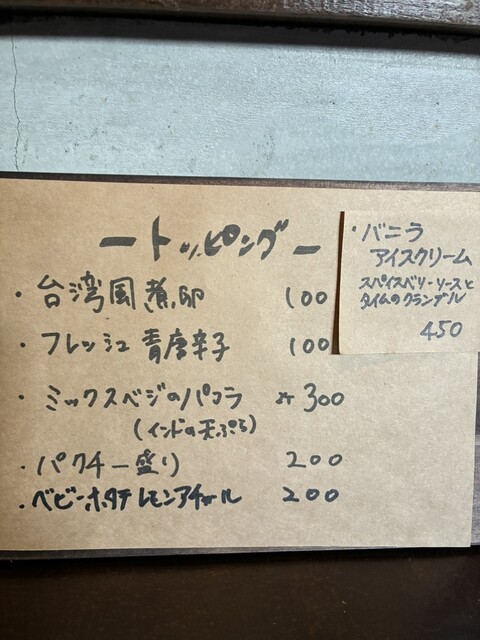 ートッピングー
・台湾風煮卵 100
・フレッシュ青唐辛子 100
・ミックスベジのパコラ ☆300
(インドの天ぷら)
・パクチー盛り 200
・ベビーホタテレモンアチャール 200
・バニラ
アイスクリーム
スパイスベリーソースと
タイムのクランブル
450